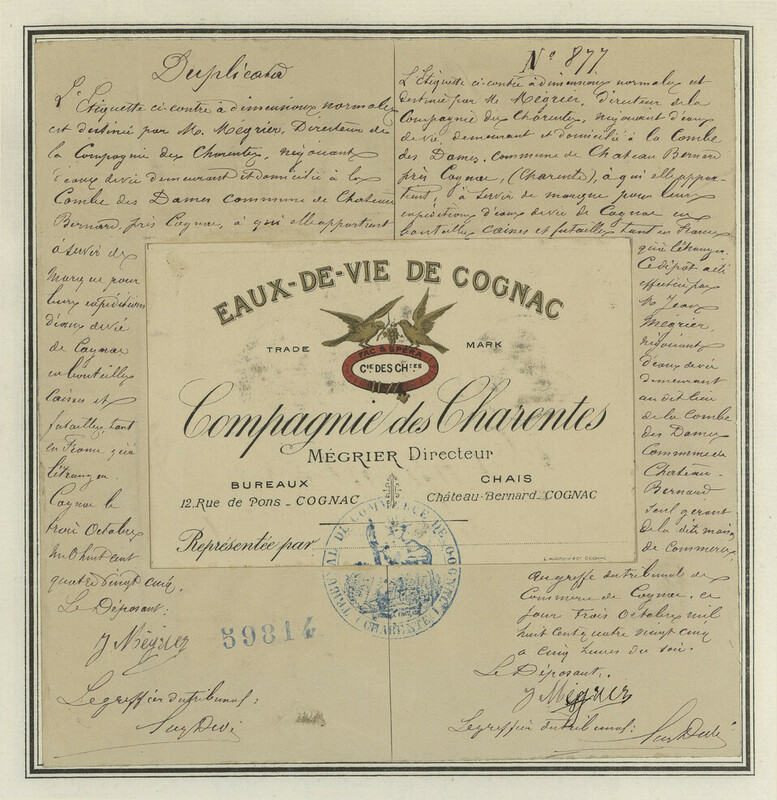 Duplicata
L'Etiquette ci-contre à dimensions normales
est destinée par M. Mégrier, Directeur de
la Compagnie des Charentes, négociant
d'eaux de vie demeurant et domicilié à la
Combe des Dames commune de Château
Bernard, près Cognac, à qui elle appartient
à servir de
marque pour
leurs expéditions
d'eaux de vie
de Cognac
en bouteilles
caisses et
futailles, tant
en France qu'à
l'étranger.
Cognac le
trois Octobre
mil huit cent
quatre vingt cinq.
Le Déposant:
J Mégrier
Le greffier du tribunal:
59814
No 877
L'Etiquette ci-contre à dimensions normales est
destinée par M. Mégrier, Directeur de la
Compagnie des Charentes, négociant d'eaux
de vie, demeurant et domicilié à la Combe
des Dames, Commune de Chateau Bernard
près Cognac, (Charente), à qui elle appar-
tient, à servir de marque pour leurs
expéditions d'eaux de vie de Cognac en
bouteilles caisses et futailles tant en France
qu'à l'étranger.
Ce dépôt a été
effectué par
M. Jean
Mégrier,
négociant
d'eaux de vie
demeurant
au dit lieu
de la Combe
des Dames
Commune de
Château-
Bernard
seul gérant
de la dite maison
de commerce.
Au greffe du tribunal de
Commerce de Cognac, ce
jour trois Octobre mil
huit cent quatre vingt cinq
à cinq heures du soir.
Le Déposant,
J Mégrier
Le greffier du tribunal:
EAUX-DE-VIE DE COGNAC
TRADE MARK
FAC & SPERA
CIE DES CHTES
Compagnie des Charentes
MÉGRIER Directeur
BUREAUX
12, Rue de Pons _ COGNAC
CHAIS
Château-Bernard _ COGNAC
Représentée par
TRIBUNAL DE COMMERCE DE COGNAC
(CHARENTE)